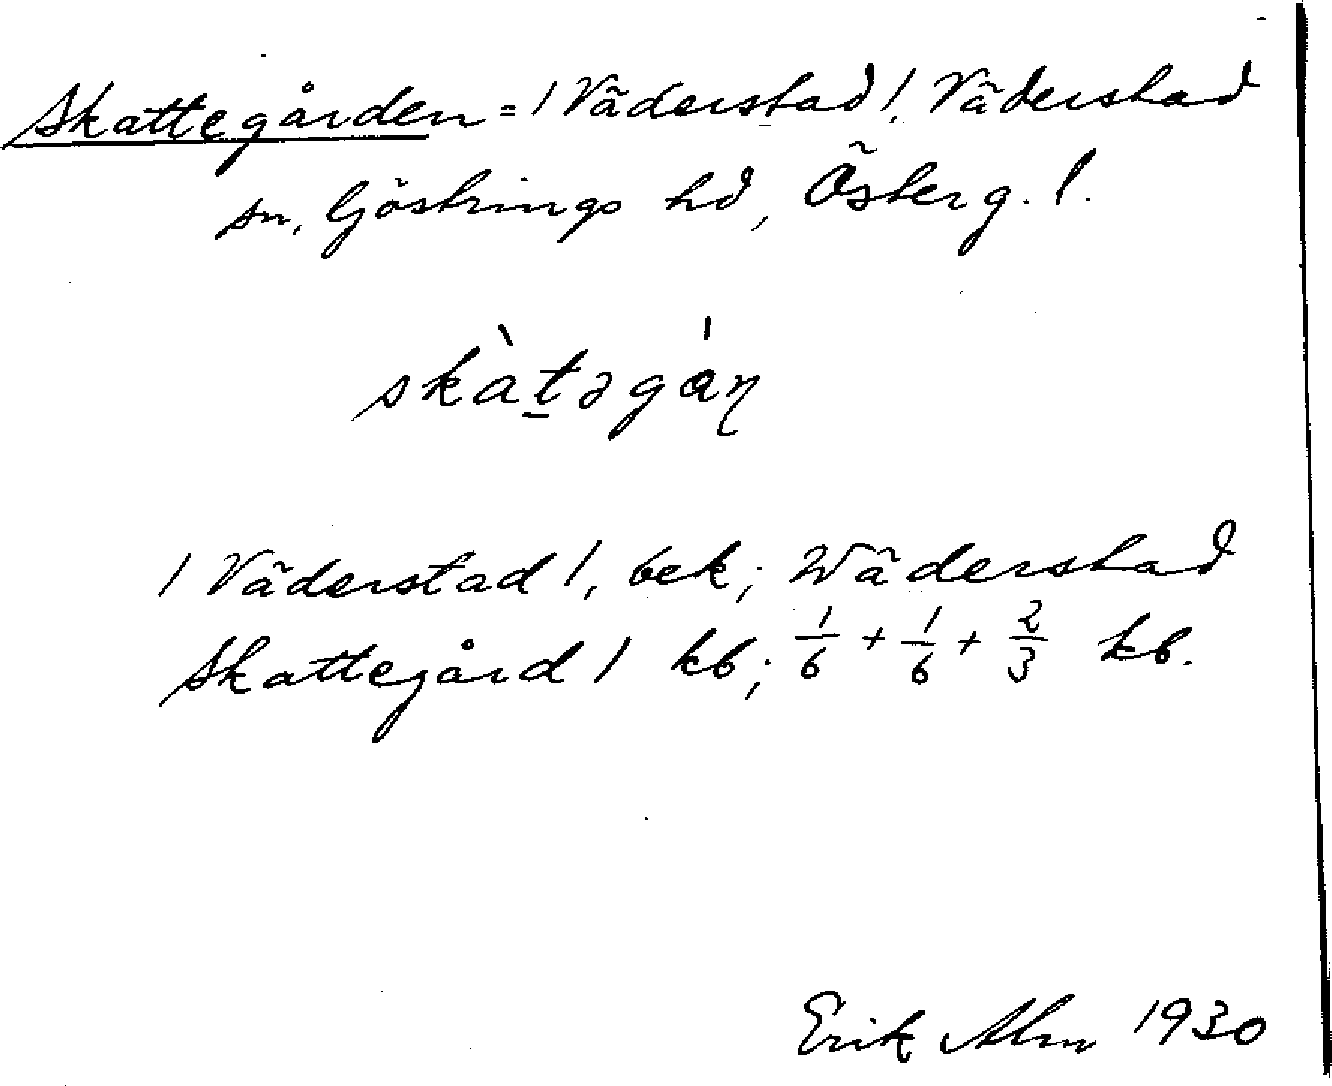 Skattegården = /Väderstad/, Väderstad
sn, Göstrings hd, Österg. l.
skàt̲əgáɳ
/Väderstad/, bek; Wäderstad
Skattegård 1 kb; 1/6 + 1/6 + 2/3 kb.
Erik Alm 1930